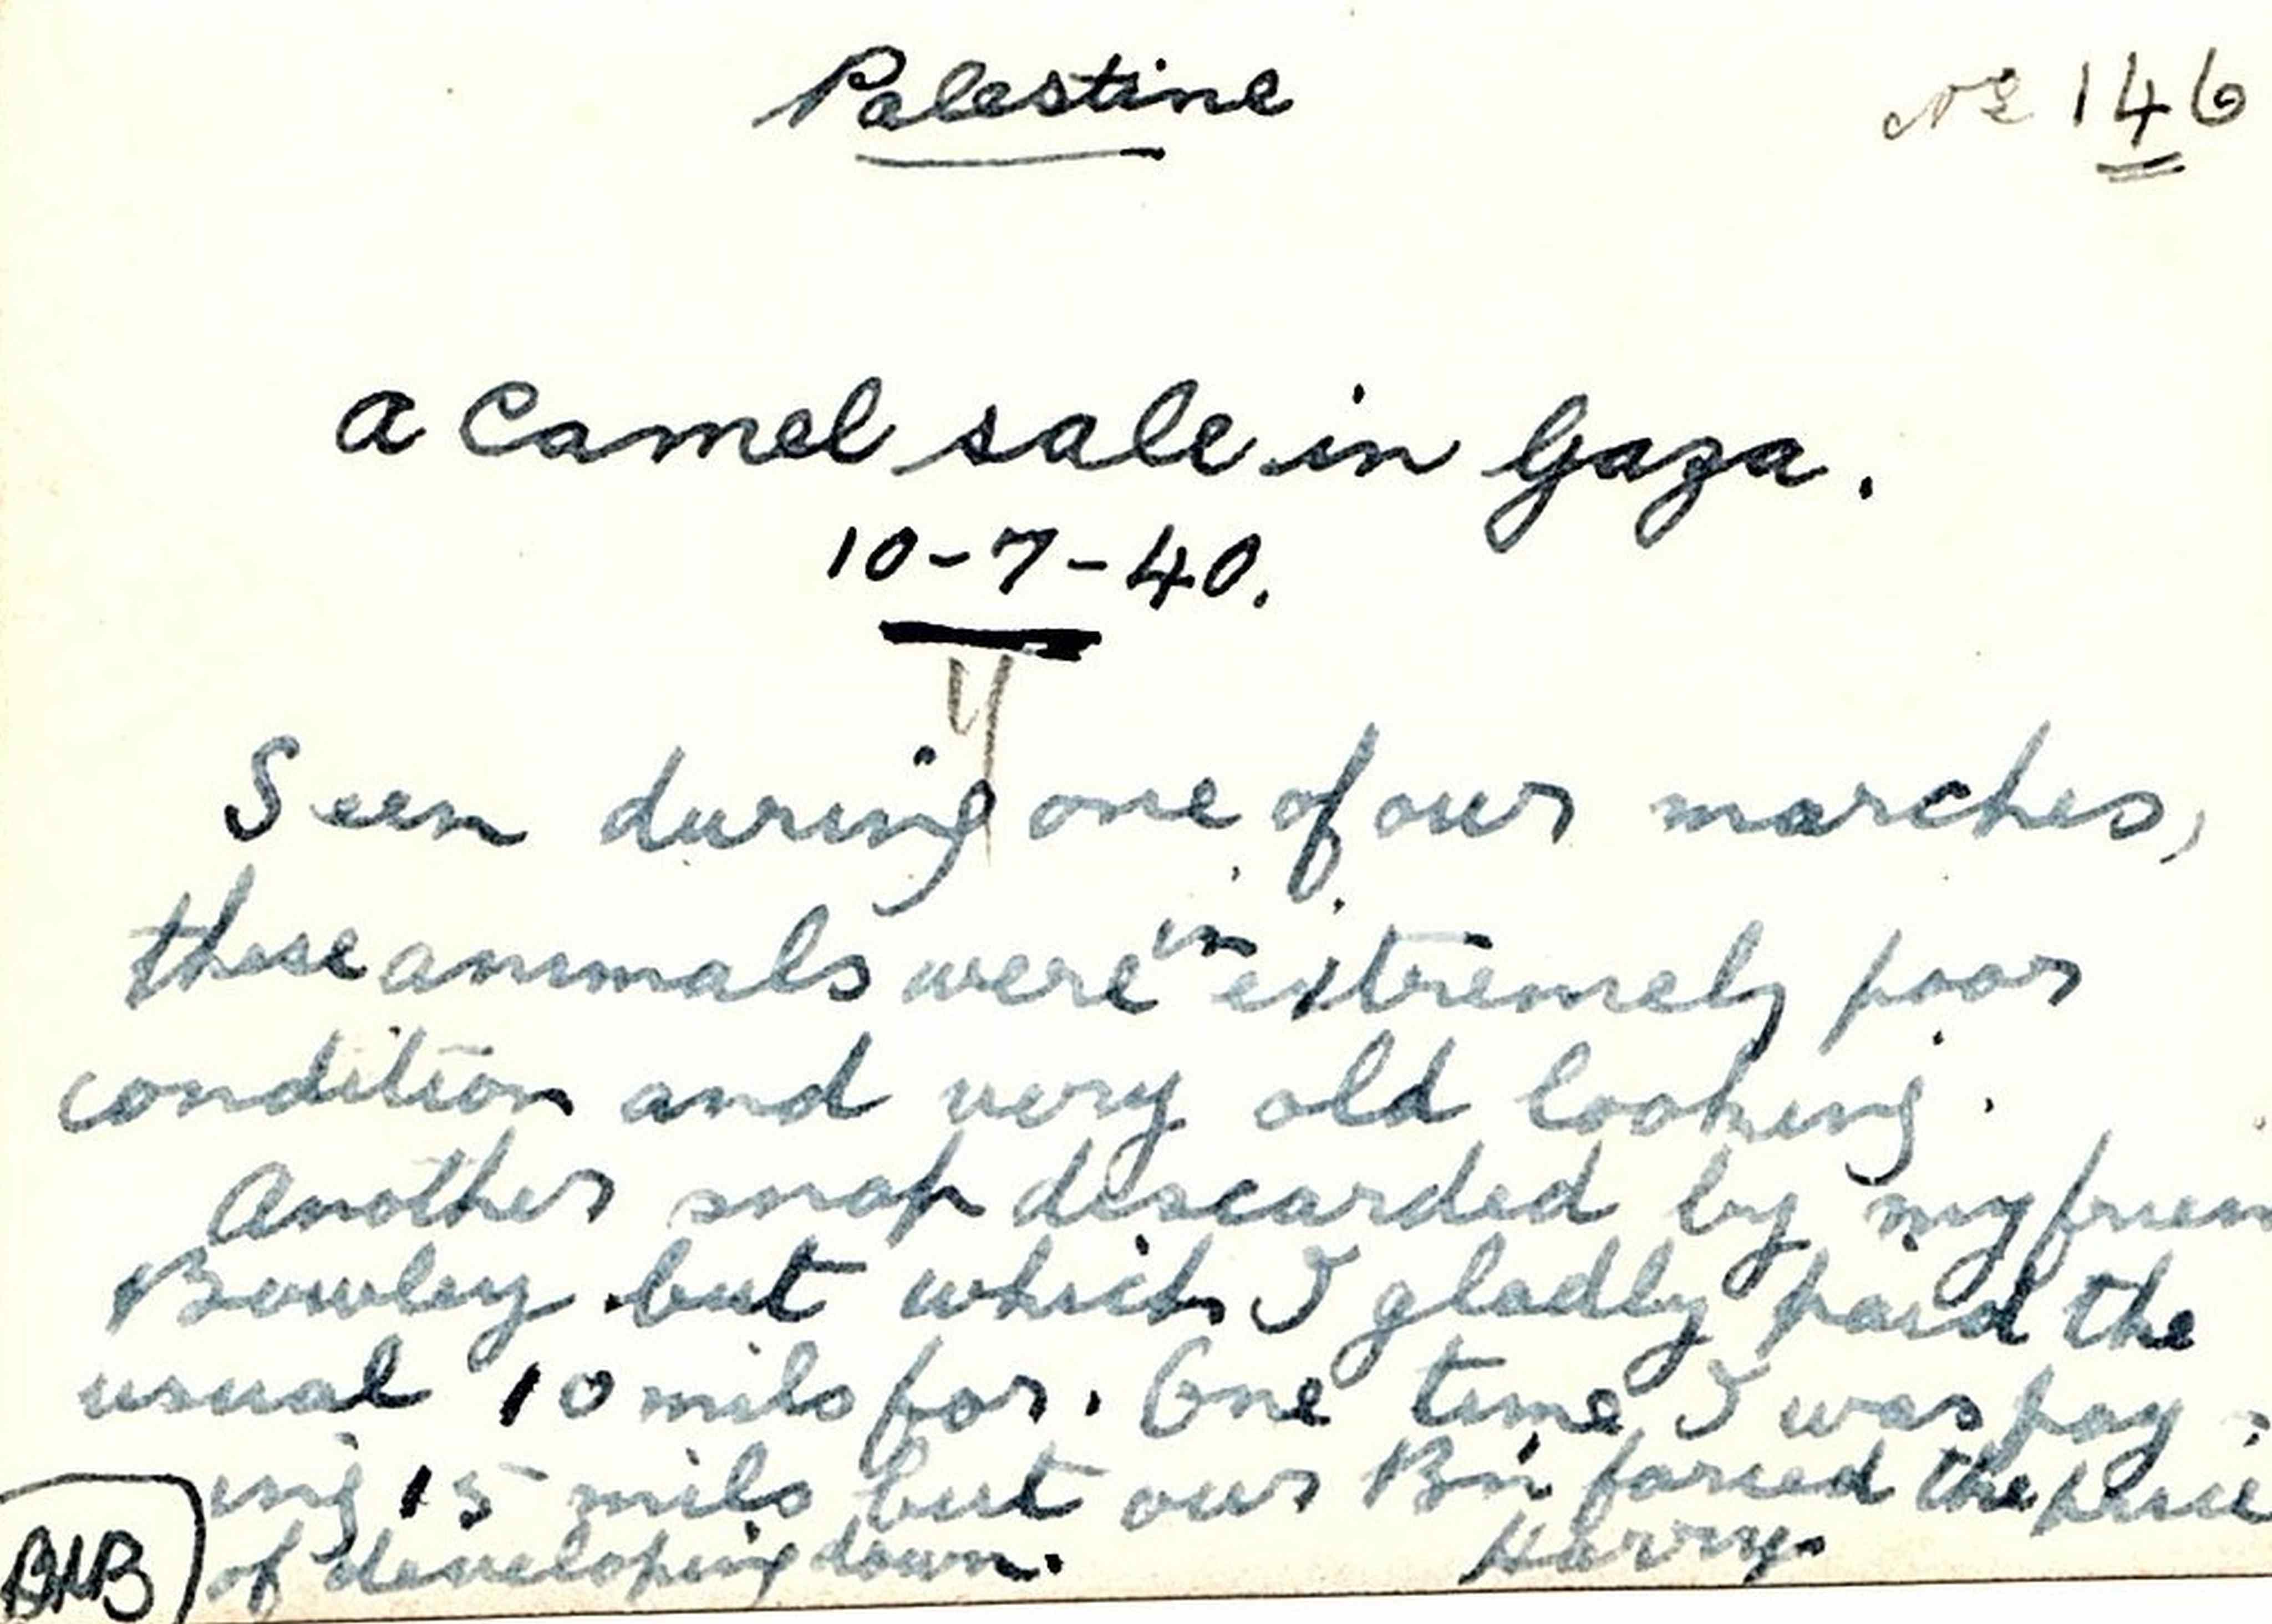 Palestine
No 146
A Camel sale in Gaza.
10-7-40.
Seen during one of our marches,
these animals were in extremely poor
condition and very old looking.
Another snap discarded by my frien
Bowley but which I gladly paid the
usual 10 mils for. One time I was pay-
ing 15 mils but our Bn forced the price
of developing down. Harry.